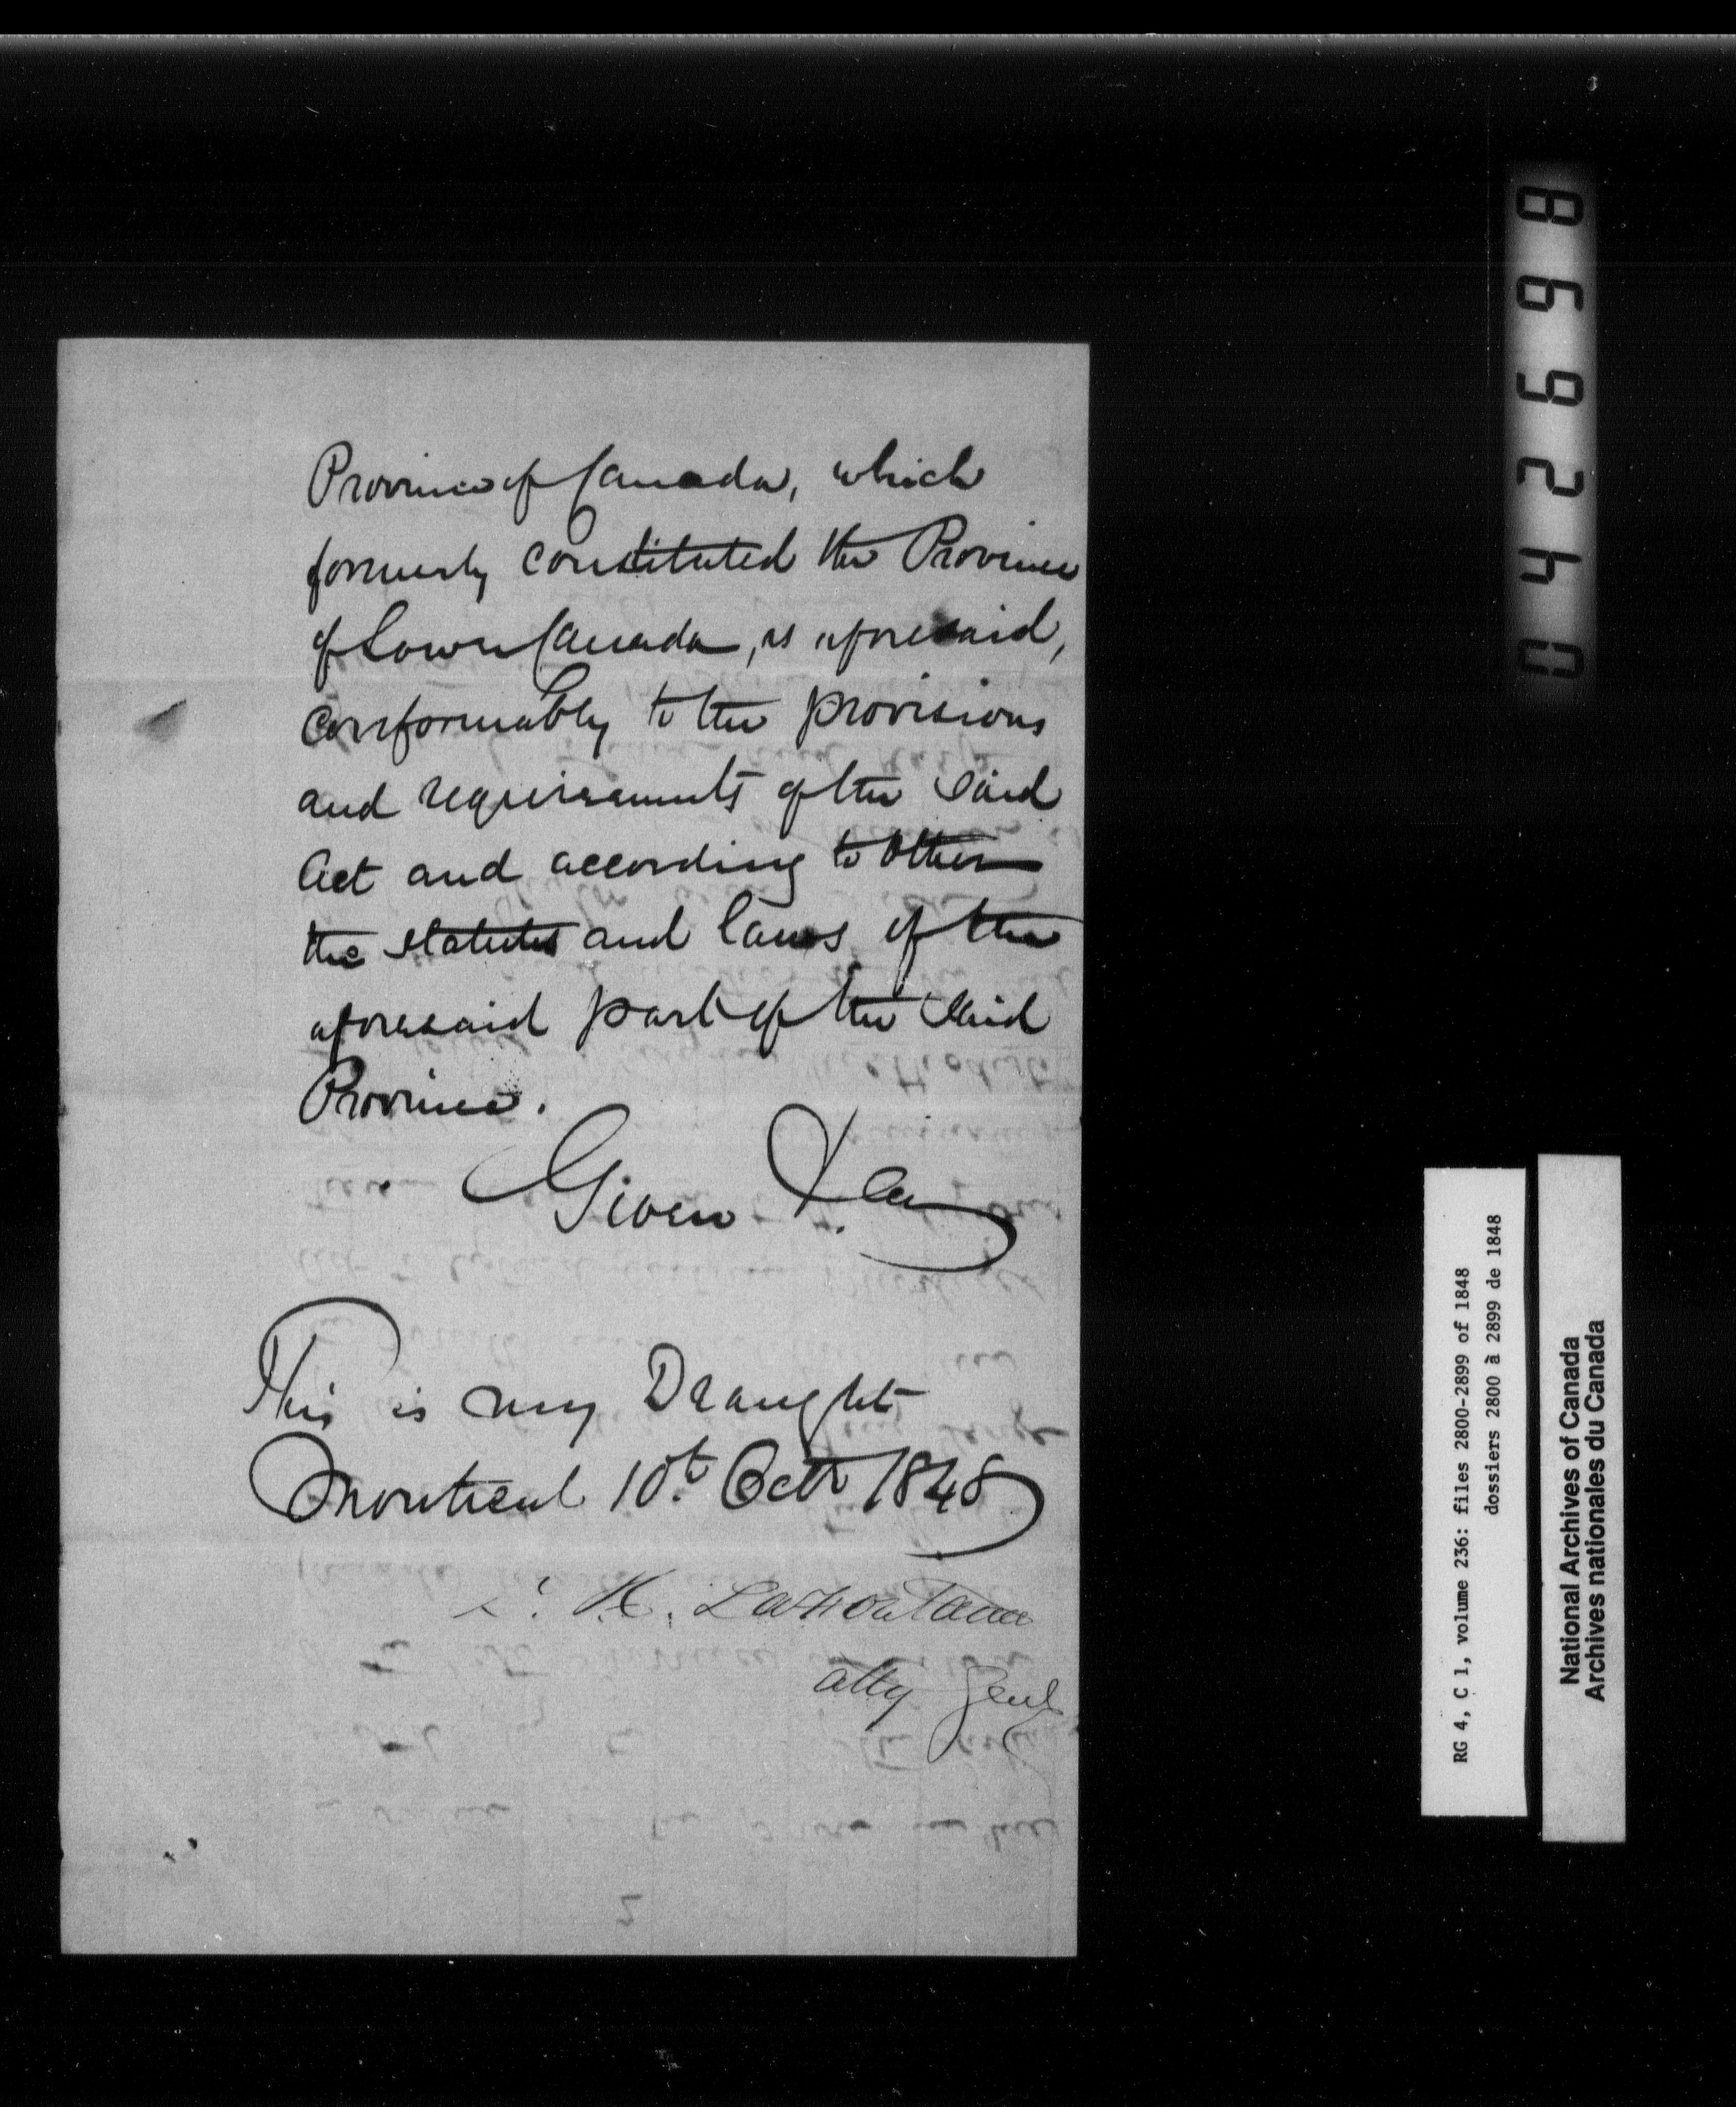 Province of Canada, which
formerly constituted the Province
of Lower Canada, as aforesaid,
conformably to the provisions
and requirements of the said
Act and according to other
the statutes and laws of the
aforesaid part of the said
Province.
Given &c
This is my Draught
Montreal 10t. Octr 1848
L. H. LaFontaine
atty Genl
042698
RG 4, C 1, volume 236: files 2800-2899 of 1848
dossiers 2800 à 2899 de 1848
National Archives of Canada
Archives nationales du Canada